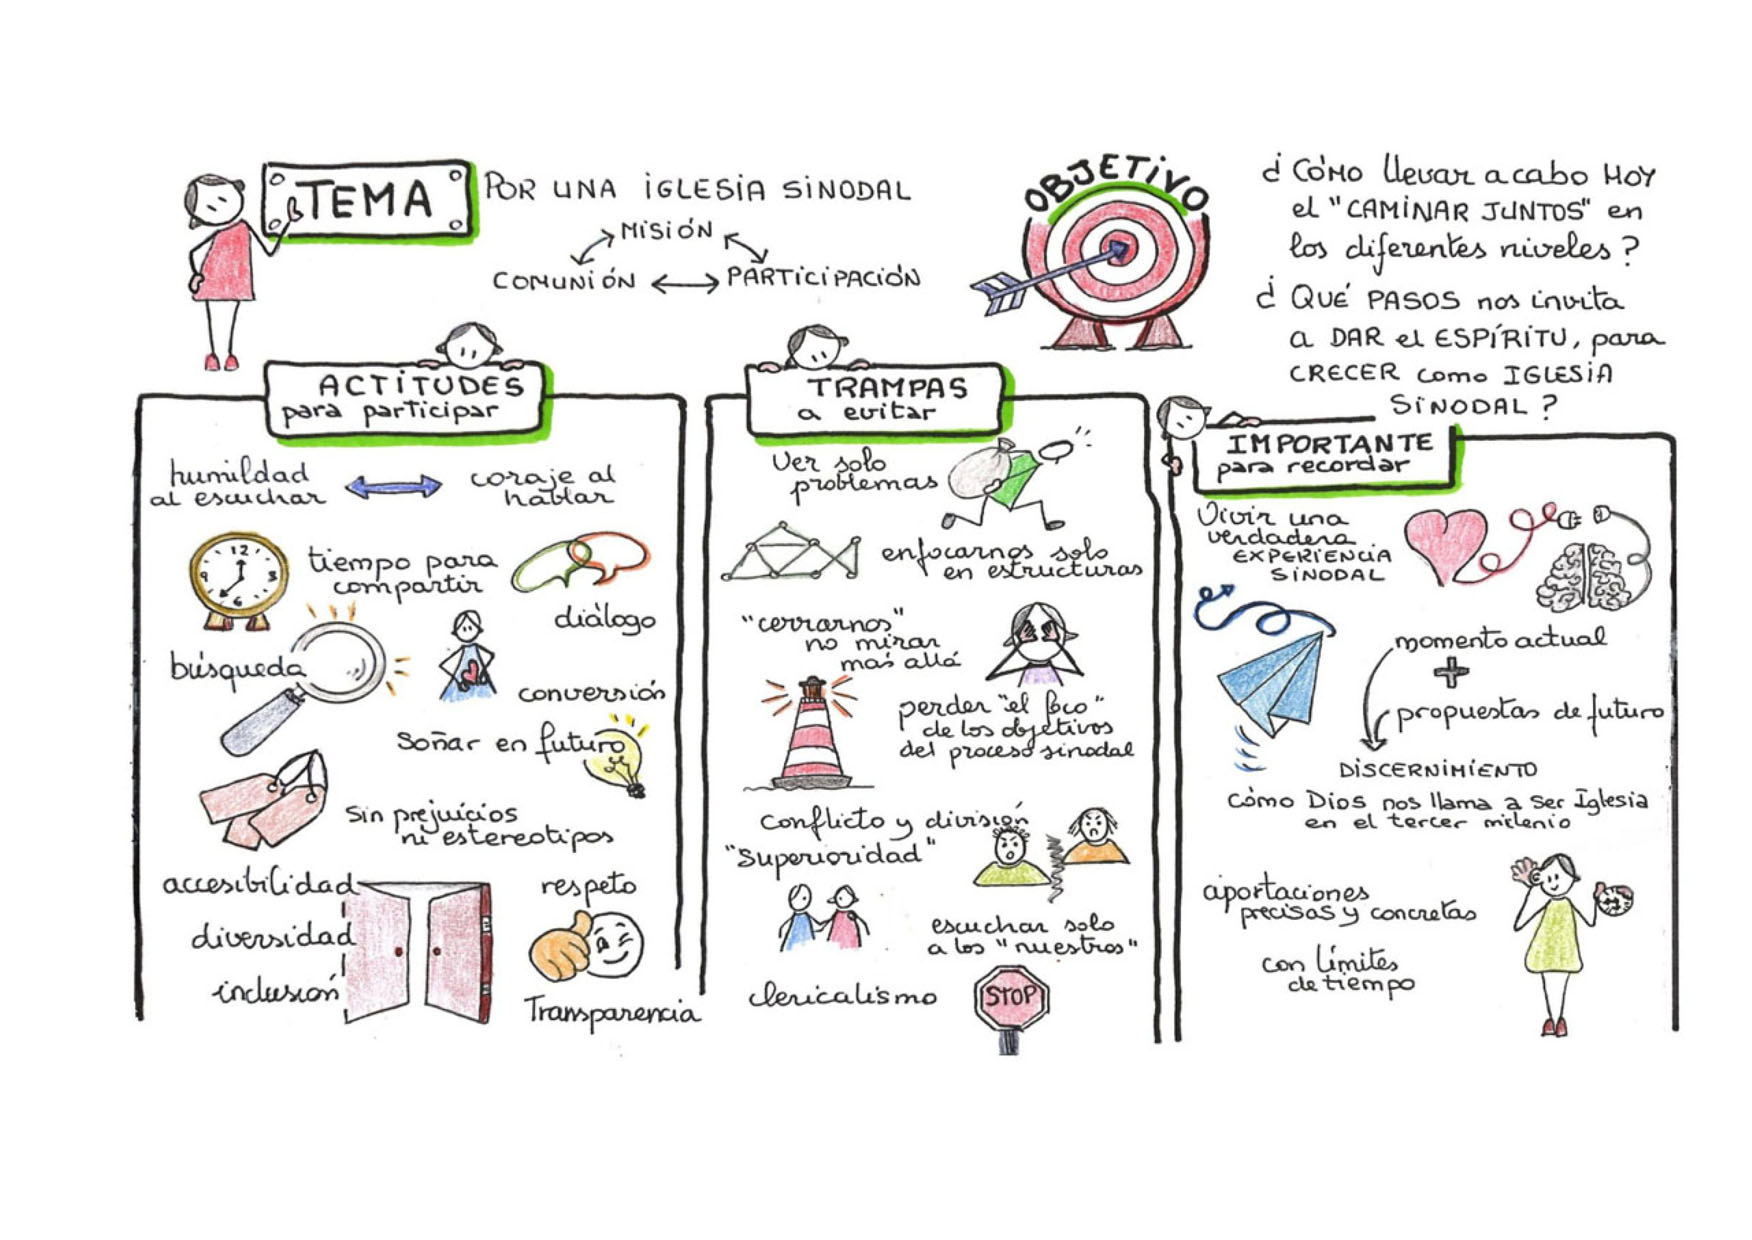 TEMA
POR UNA IGLESIA SINODAL
MISIÓN
COMUNIÓN
PARTICIPACIÓN
OBJETIVO
¿CÓMO llevar a cabo HOY
el "CAMINAR JUNTOS" en
los diferentes niveles?
¿QUÉ PASOS nos invita
a DAR el ESPÍRITU, para
CRECER como IGLESIA
SINODAL?
ACTITUDES
para participar
humildad
al escuchar
coraje al
hablar
12
3
6
9
tiempo para
compartir
diálogo
búsqueda
conversión
Soñar en futuro
Sin prejuicios
ni estereotipos
accesibilidad
diversidad
inclusión
respeto
Transparencia
TRAMPAS
a evitar
Ver solo
problemas
enfocarnos solo
en estructuras
"cerrarnos"
no mirar
mas allá
perder "el foco"
de los objetivos
del proceso sinodal
Conflicto y división
"Superioridad"
escuchar solo
a los "nuestros"
clericalismo
STOP
IMPORTANTE
para recordar
Vivir una
verdadera
EXPERIENCIA
SINODAL
momento actual
+
propuestas de futuro
DISCERNIMIENTO
cómo Dios nos llama a ser Iglesia
en el tercer milenio
aportaciones
precisas y concretas
con límites
de tiempo